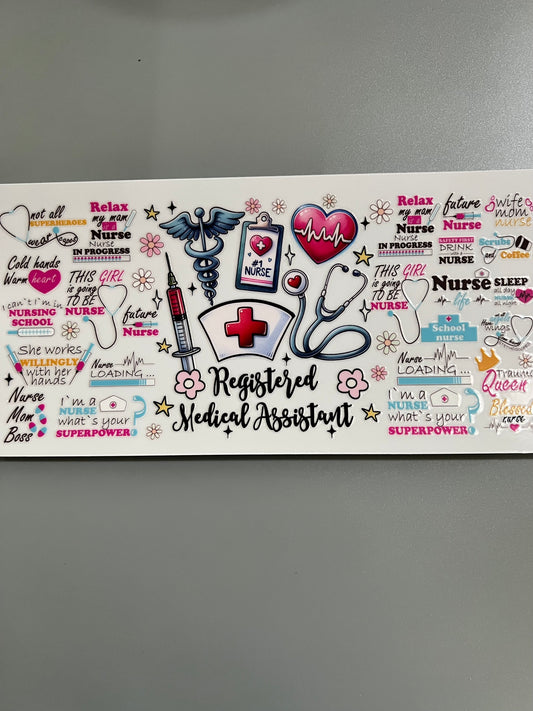 not all
SUPERHEROES
wear capes
Cold hands
Warm heart
I can't I'm in
NURSING
SCHOOL
She works
WILLINGLY
with her
hands
Nurse
Mom
Boss
Relax
my mam
is a
Nurse
Nurse
IN PROGRESS
THIS GIRL
is going
TO BE
NURSE
future
Nurse
Nurse
LOADING...
I'm a
NURSE
what's your
SUPERPOWER?
#1
NURSE
Registered
Medical Assistant
Relax
my mam
is a
Nurse
Nurse
IN PROGRESS
THIS GIRL
is going
TO BE
NURSE
Nurse
LOADING...
I'm a
NURSE
what's your
SUPERPOWER?
future
Nurse
SAFETY FIRST
DRINK
with a
NURSE
Nurse
life
School
nurse
wife
mom
nurse
Scrubs
and
Coffee
SLEEP
all day
all night
wings
Trauma
Queen
Blessed
nurse